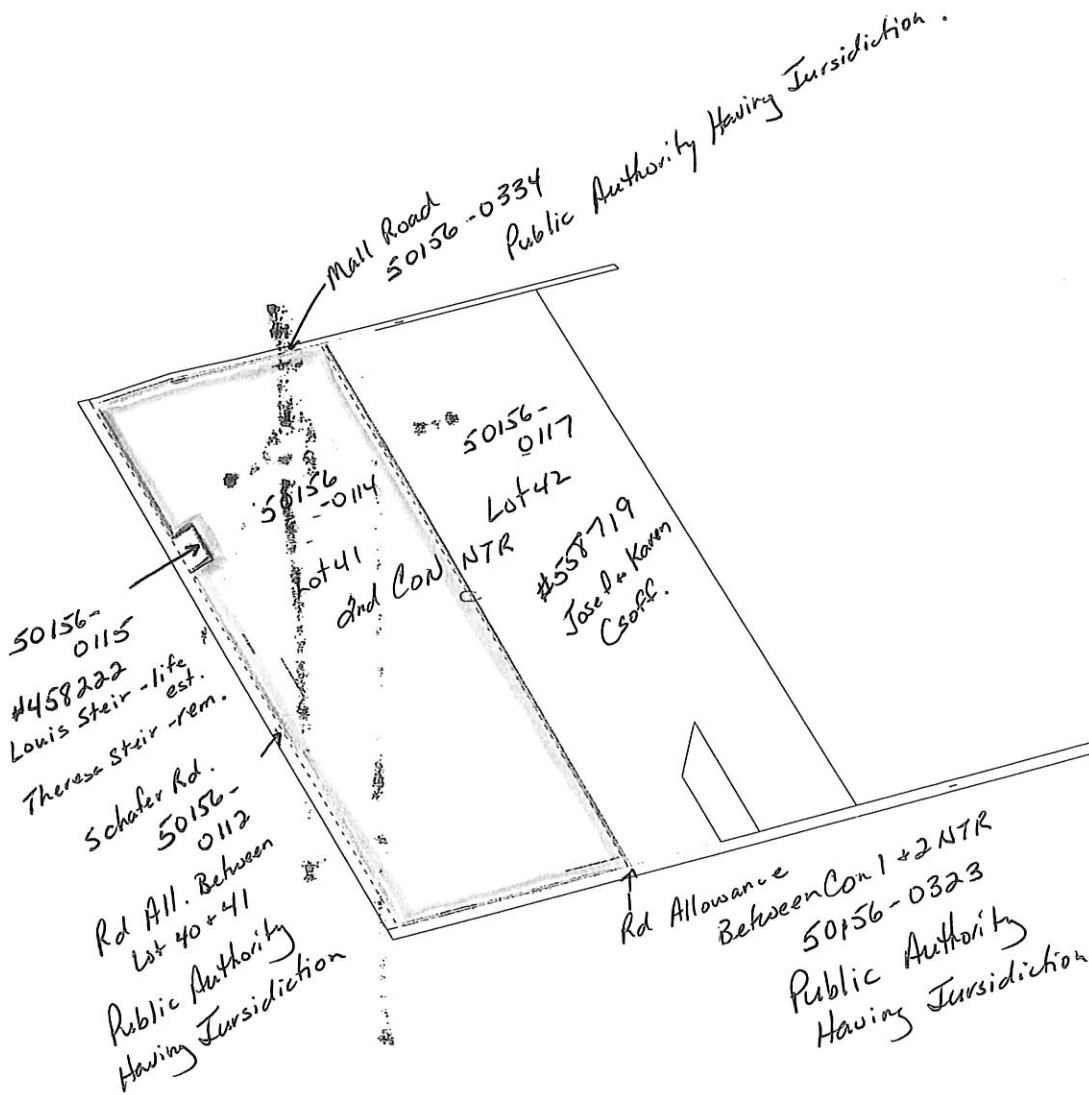 Mall Road
50156-0334
Public Authority Having Jursidiction.
50156-
0117
Lot 42
#558719
Josep + Karen
Csoff.
50156
-0114
Lot 41
2nd CON NTR
50156-
0115
#458222
Louis Steir - life
est.
Theresa Steir - rem.
Schafer Rd.
50156-
0112
Rd All. Between
Lot 40 + 41
Public Authority
Having Jursidiction
Rd Allowance
Between Con 1 + 2 NTR
50156-0323
Public Authority
Having Jursidiction